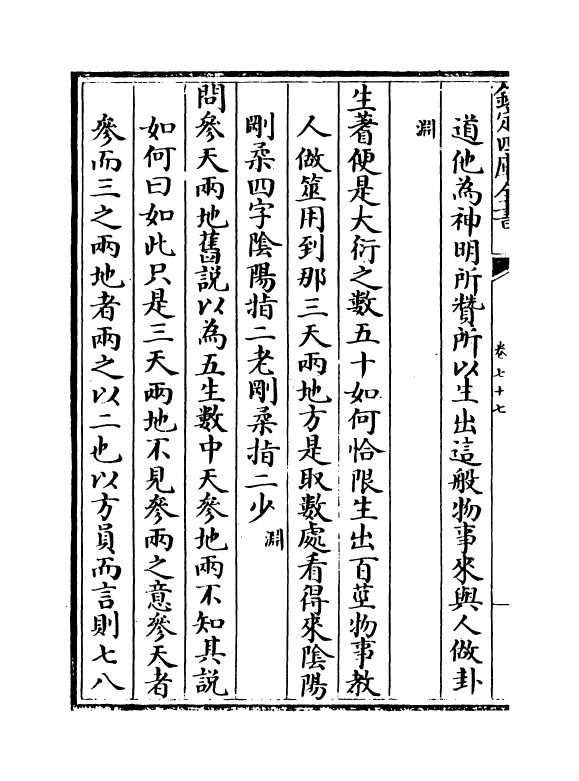 欽定四庫全書
卷七十七
道他為神明所贊所以生出這般物事來與人做卦
淵
生蓍便是大衍之數五十如何恰限生出百莖物事教
人做筮用到那三天兩地方是取數處看得來陰陽
剛柔四字陰陽指二老剛柔指二少淵
問參天兩地舊說以為五生數中天參地兩不知其說
如何曰如此只是三天兩地不見參兩之意參天者
參而三之兩地者兩之以二也以方員而言則七八